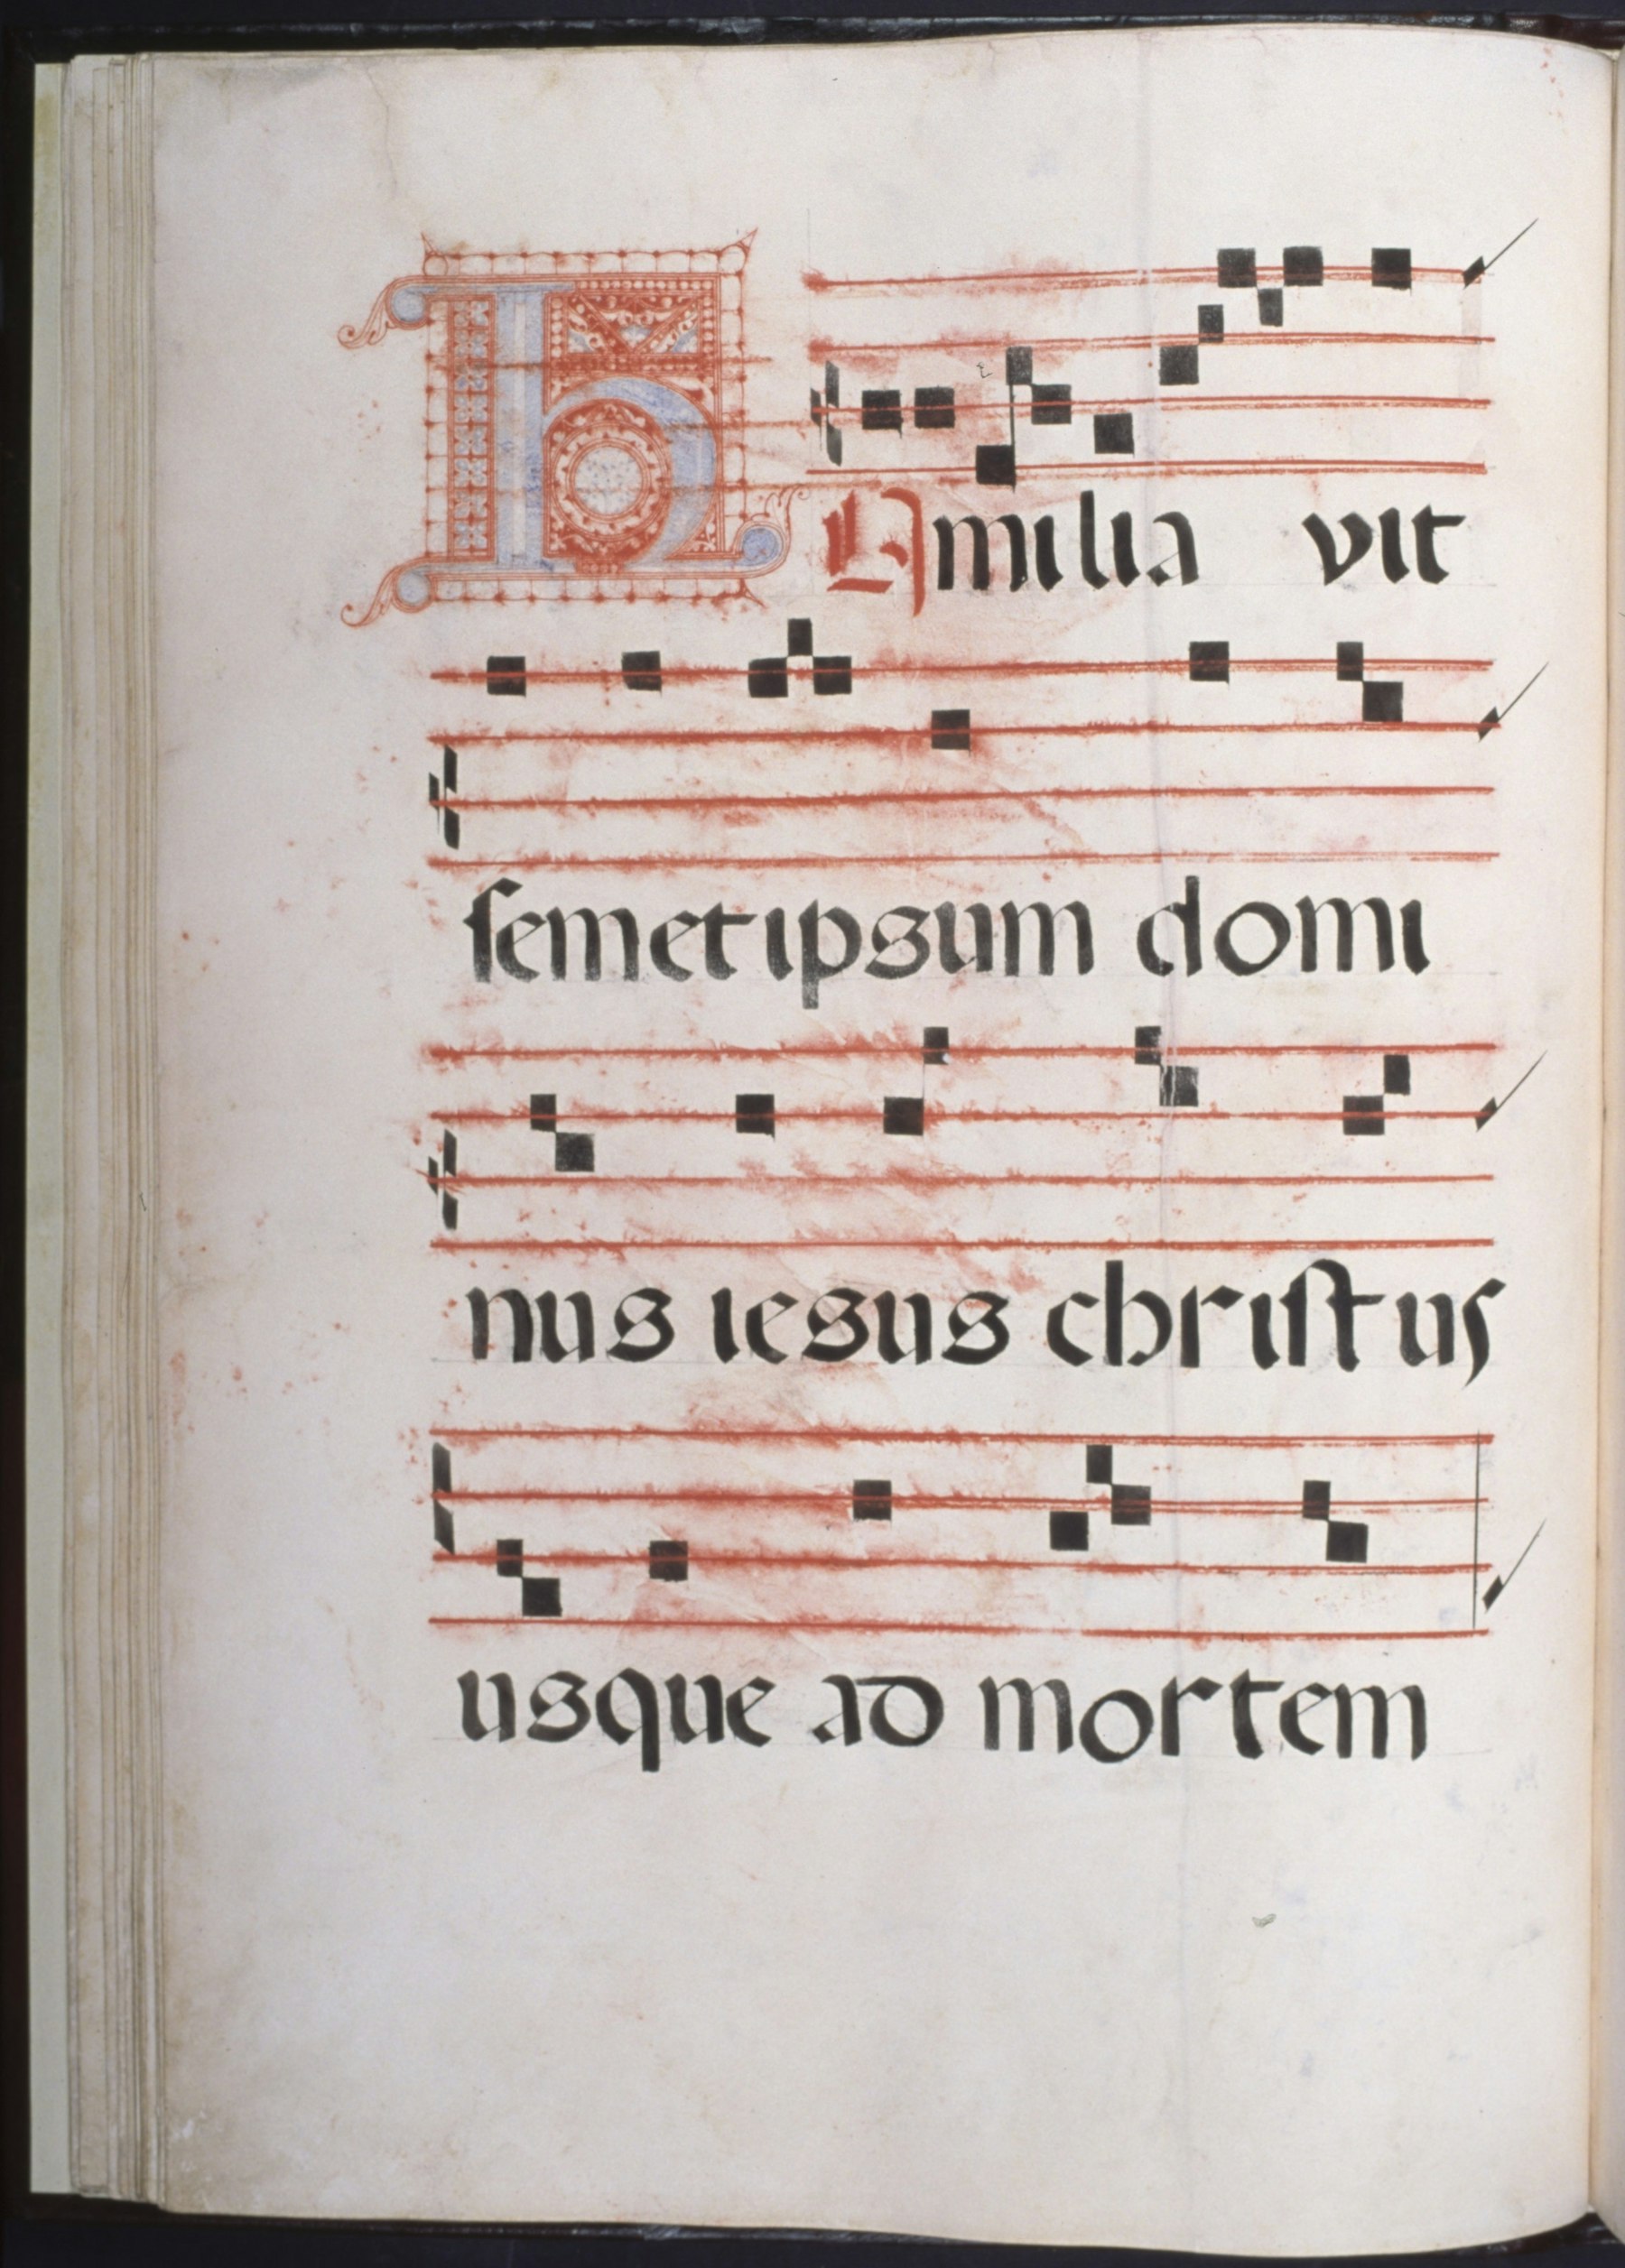 hUmilia vit
ſemetipsum domi
nus iesus chriſtus
usque ad mortem